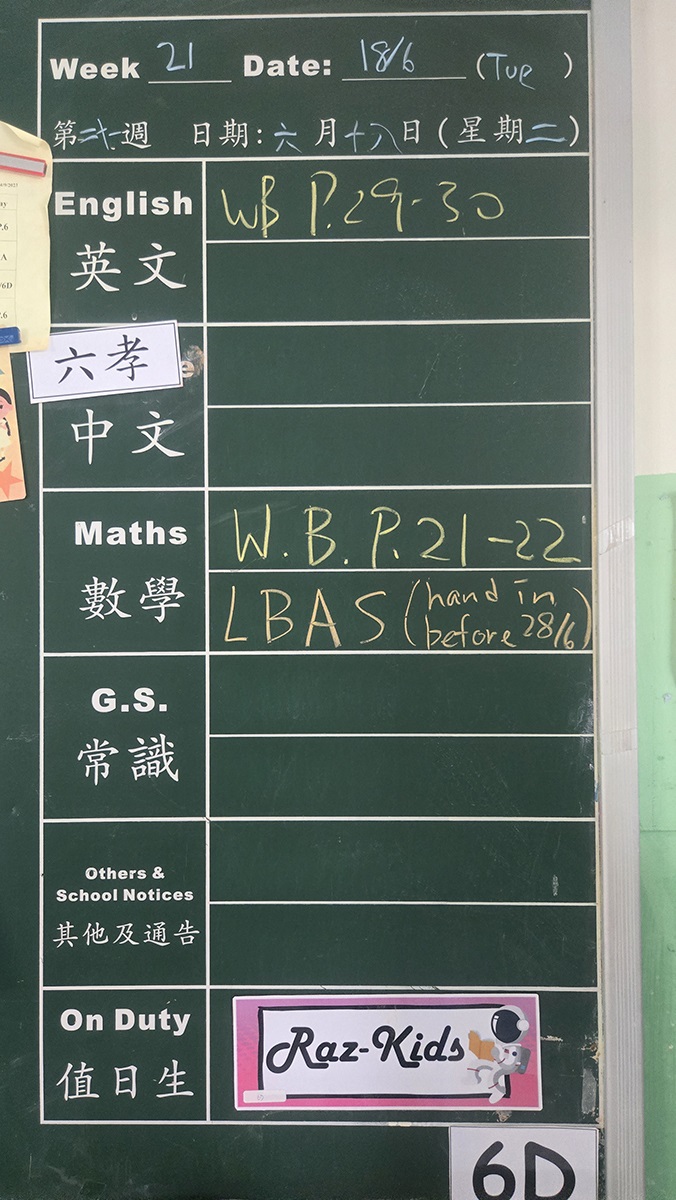 Week 21 Date: 18/6 (Tue)
第二十一週 日期:六月十八日(星期二)
English
WB P.29-30
英文
六孝
中文
Maths
W.B.P.21-22
數學
LBAS (hand in
before 28/6)
G.S.
常識
Others &
School Notices
其他及通告
On Duty
值日生
Raz-Kids
6D
P.6
A
/6D
.6